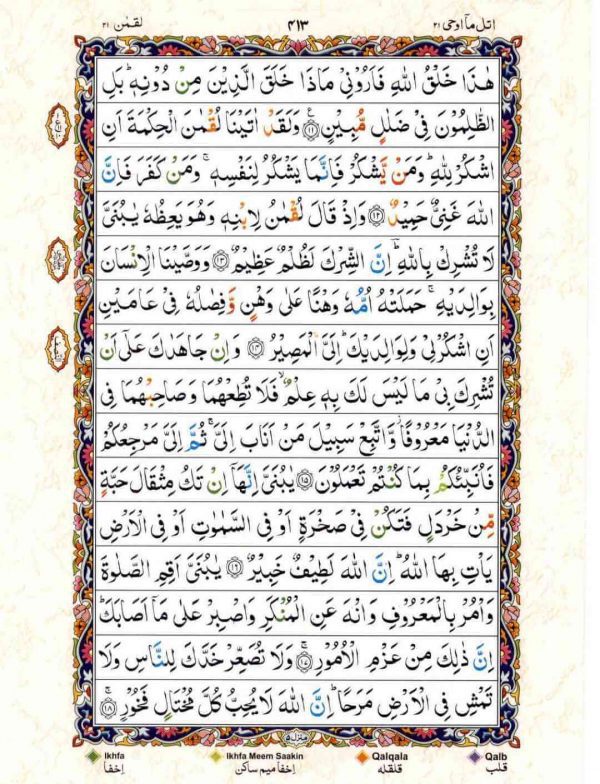 لقمٰن ٣١ ٤١٣ اتل مآ اوحی ٢١
هٰذَا خَلْقُ اللّٰهِ فَاَرُوْنِیْ مَاذَا خَلَقَ الَّذِیْنَ مِنْ دُوْنِهٖ ؕ بَلِ
الظّٰلِمُوْنَ فِیْ ضَلٰلٍ مُّبِیْنٍ ﴿١١﴾ وَلَقَدْ اٰتَیْنَا لُقْمٰنَ الْحِكْمَةَ اَنِ
اشْكُرْ لِلّٰهِ ؕ وَمَنْ یَّشْكُرْ فَاِنَّمَا یَشْكُرُ لِنَفْسِهٖ ۚ وَمَنْ كَفَرَ فَاِنَّ
اللّٰهَ غَنِیٌّ حَمِیْدٌ ﴿١٢﴾ وَاِذْ قَالَ لُقْمٰنُ لِابْنِهٖ وَهُوَ یَعِظُهٗ یٰبُنَیَّ
لَا تُشْرِكْ بِاللّٰهِ ؔؕ اِنَّ الشِّرْكَ لَظُلْمٌ عَظِیْمٌ ﴿١٣﴾ وَوَصَّیْنَا الْاِنْسَانَ
بِوَالِدَیْهِ ۚ حَمَلَتْهُ اُمُّهٗ وَهْنًا عَلٰی وَهْنٍ وَّفِصٰلُهٗ فِیْ عَامَیْنِ
اَنِ اشْكُرْ لِیْ وَلِوَالِدَیْكَ ؕ اِلَیَّ الْمَصِیْرُ ﴿١٤﴾ وَاِنْ جَاهَدٰكَ عَلٰۤی اَنْ
تُشْرِكَ بِیْ مَا لَیْسَ لَكَ بِهٖ عِلْمٌ ۙ فَلَا تُطِعْهُمَا وَصَاحِبْهُمَا فِی
الدُّنْیَا مَعْرُوْفًا ؗ وَّاتَّبِعْ سَبِیْلَ مَنْ اَنَابَ اِلَیَّ ۚ ثُمَّ اِلَیَّ مَرْجِعُكُمْ
فَاُنَبِّئُكُمْ بِمَا كُنْتُمْ تَعْمَلُوْنَ ﴿١٥﴾ یٰبُنَیَّ اِنَّهَاۤ اِنْ تَكُ مِثْقَالَ حَبَّةٍ
مِّنْ خَرْدَلٍ فَتَكُنْ فِیْ صَخْرَةٍ اَوْ فِی السَّمٰوٰتِ اَوْ فِی الْاَرْضِ
یَاْتِ بِهَا اللّٰهُ ؕ اِنَّ اللّٰهَ لَطِیْفٌ خَبِیْرٌ ﴿١٦﴾ یٰبُنَیَّ اَقِمِ الصَّلٰوةَ
وَاْمُرْ بِالْمَعْرُوْفِ وَانْهَ عَنِ الْمُنْكَرِ وَاصْبِرْ عَلٰی مَاۤ اَصَابَكَ ؕ
اِنَّ ذٰلِكَ مِنْ عَزْمِ الْاُمُوْرِ ﴿١٧﴾ وَلَا تُصَعِّرْ خَدَّكَ لِلنَّاسِ وَلَا
تَمْشِ فِی الْاَرْضِ مَرَحًا ؕ اِنَّ اللّٰهَ لَا یُحِبُّ كُلَّ مُخْتَالٍ فَخُوْرٍ ﴿١٨﴾
منزل ٥
Ikhfa Ikhfa Meem Saakin Qalqala Qalb
اِخفا اِخفا میم ساکن قلقله قلب